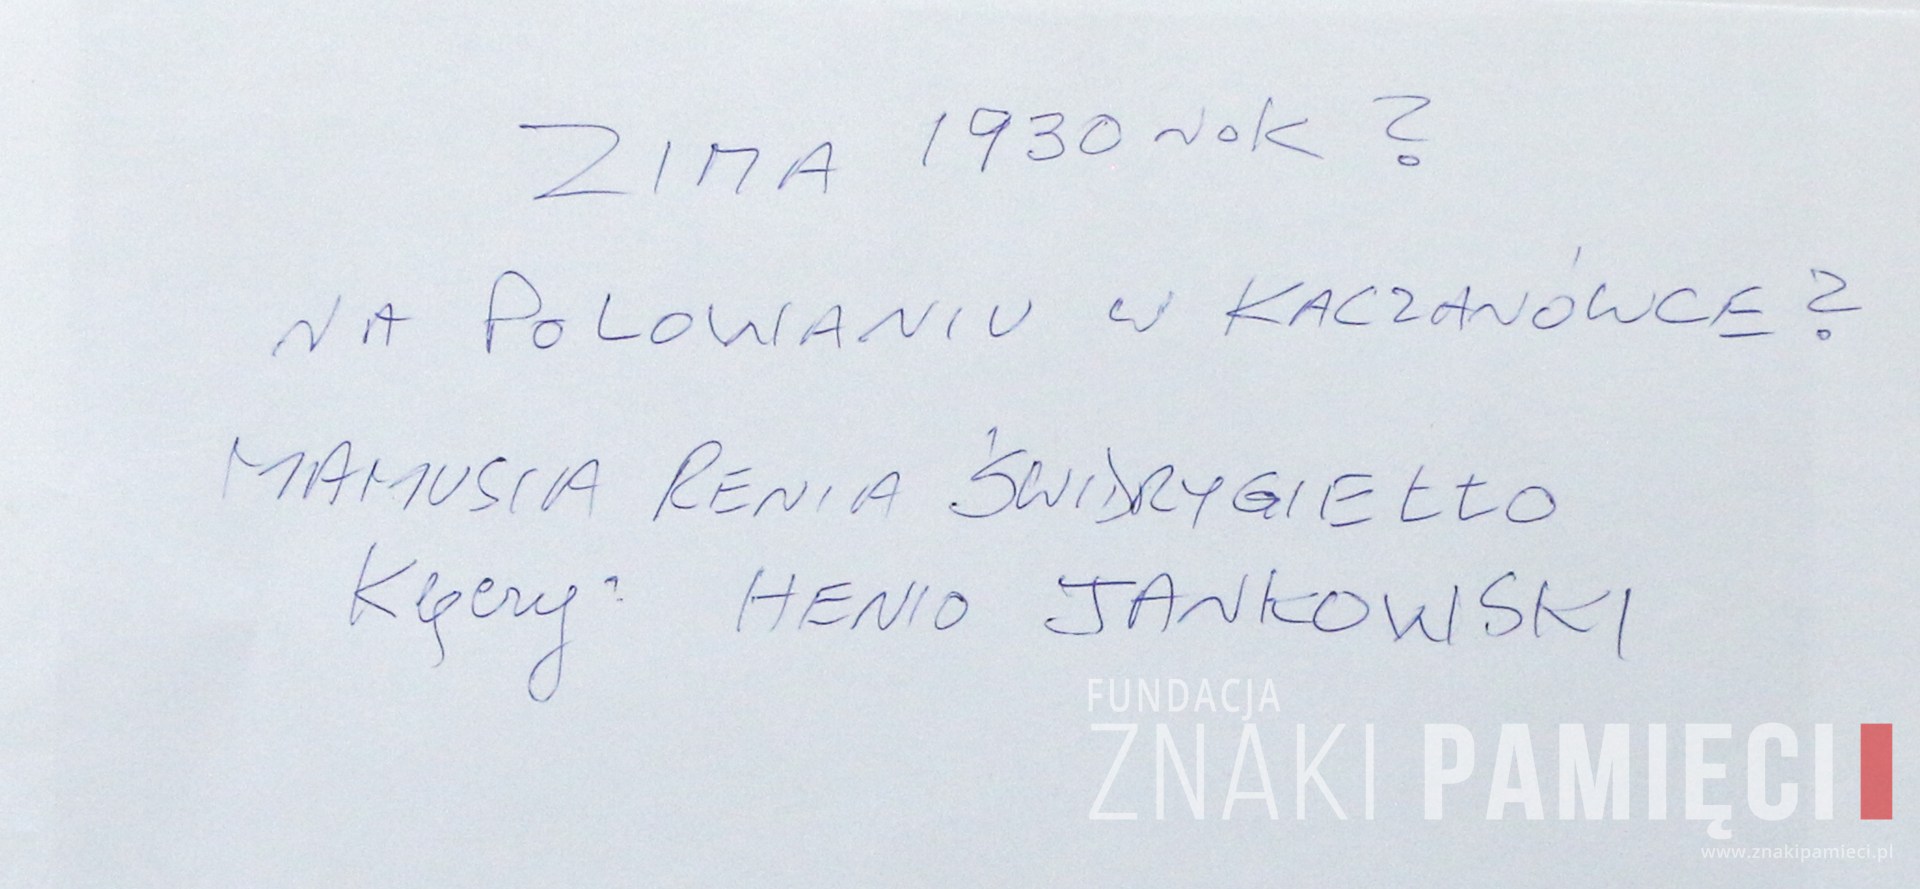 ZIMA 1930 ROK?
NA POLOWANIU W KACZANÓWCE?
MAMUSIA RENIA ŚWIDRYGIEŁŁO
HENIO JANKOWSKI
FUNDACJA
ZNAKI PAMIĘCI
www.znakipamieci.pl